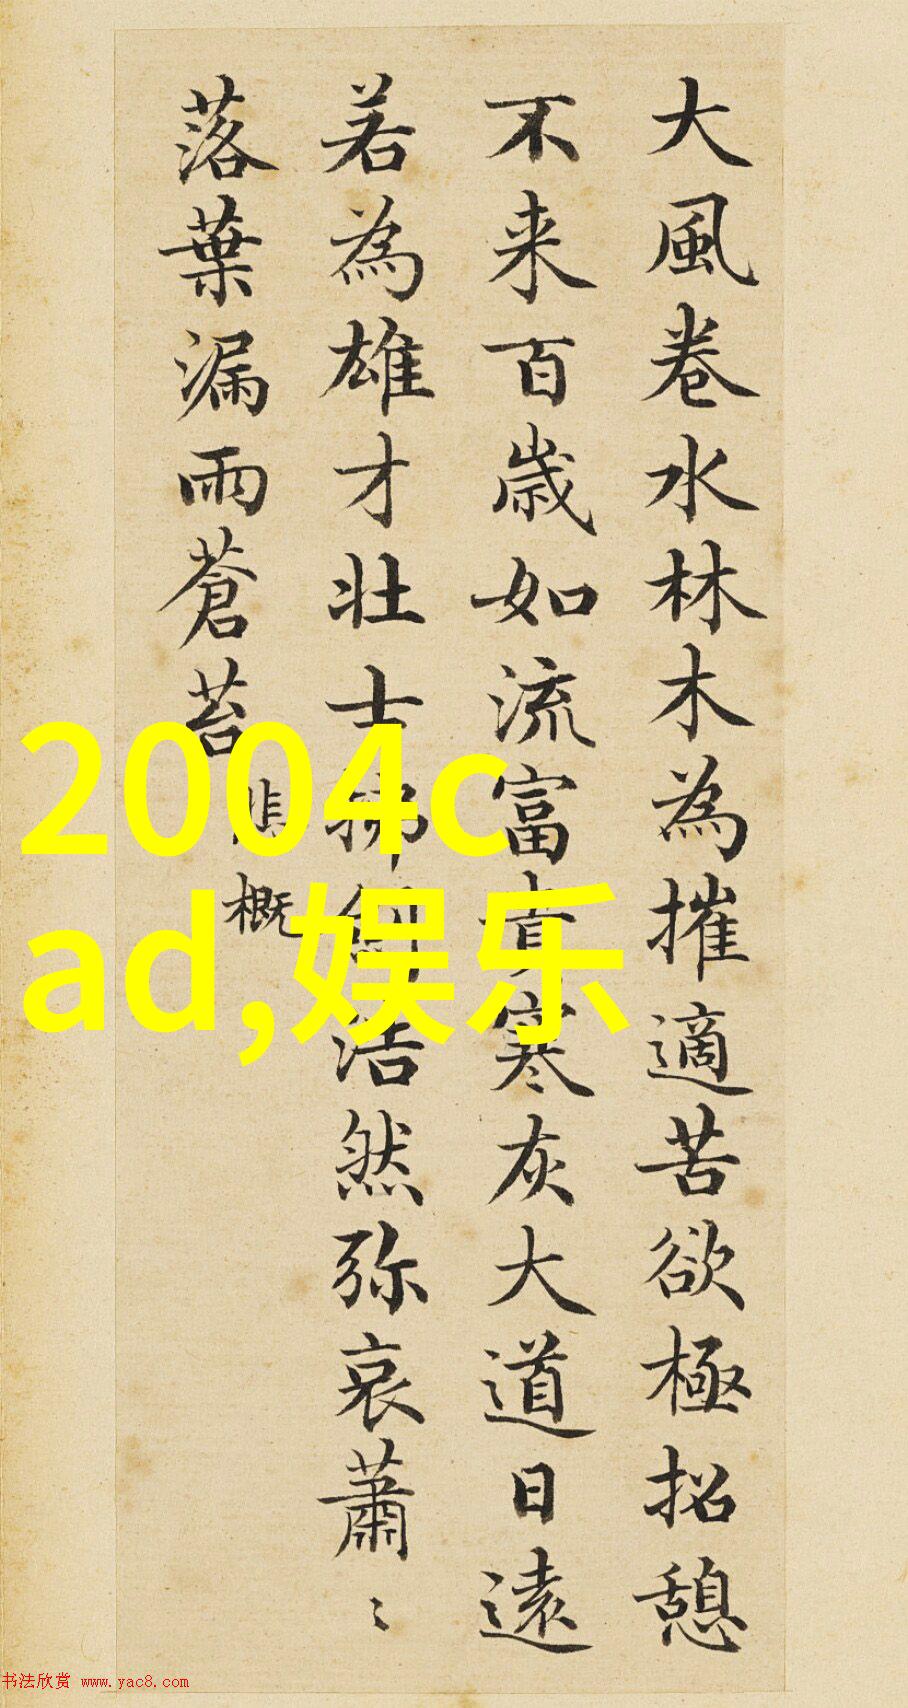 大風卷水林木為摧適苦欲極招憩
不来百歳如流富貴寒灰大道日遠
若為雄才壮士拂浩然弥哀蕭〻
落葉漏雨蒼苔
概
2004c
ad,娱乐
书法欣赏 www.yac8.com